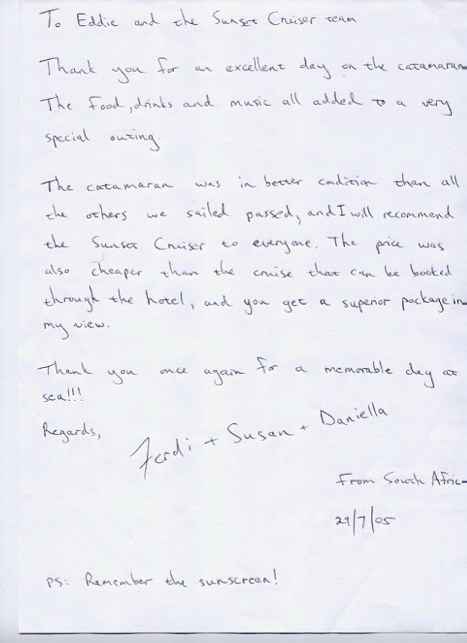 To Eddie and the Sunset Cruiser team
Thank you for an excellent day on the catamaran
The food, drinks and music all added to a very
special outing
The catamaran was in better condition than all
the others we sailed passed, and I will recommend
the Sunset Cruiser to everyone. The price was
also cheaper than the cruise that can be booked
through the hotel, and you get a superior package in
my view.
Thank you once again for a memorable day at
sea!!!
Regards,
Ferdi + Susan + Daniella
From South Afric
29/7/05
PS: Remember the sunscreen!